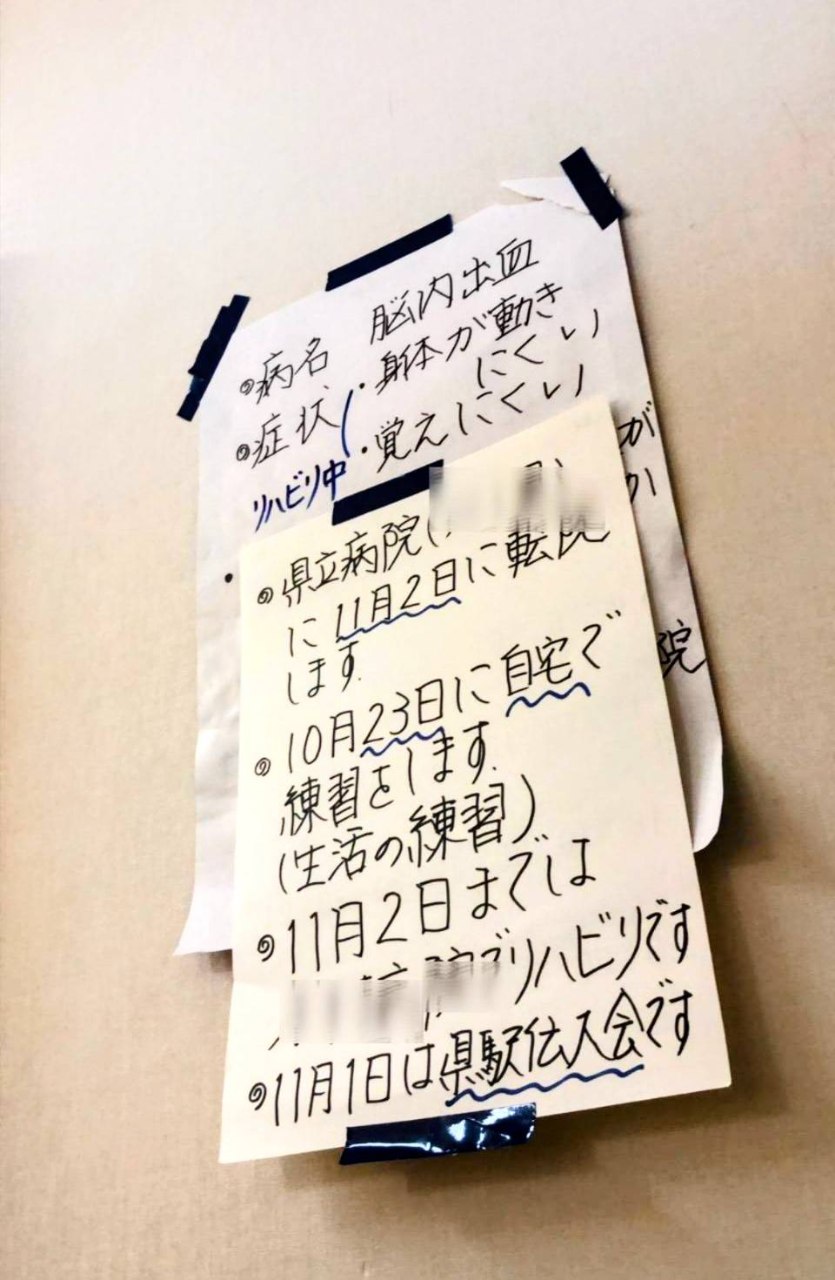 ◎病名 脳内出血
◎症状 ・身体が動き
にくい
・覚えにくい
リハビリ中
が
か
院
◎県立病院(
に11月2日に転院
します.
◎10月23日に自宅で
練習をします.
(生活の練習)
◎11月2日までは
院でリハビリです
◎11月1日は県駅伝大会です